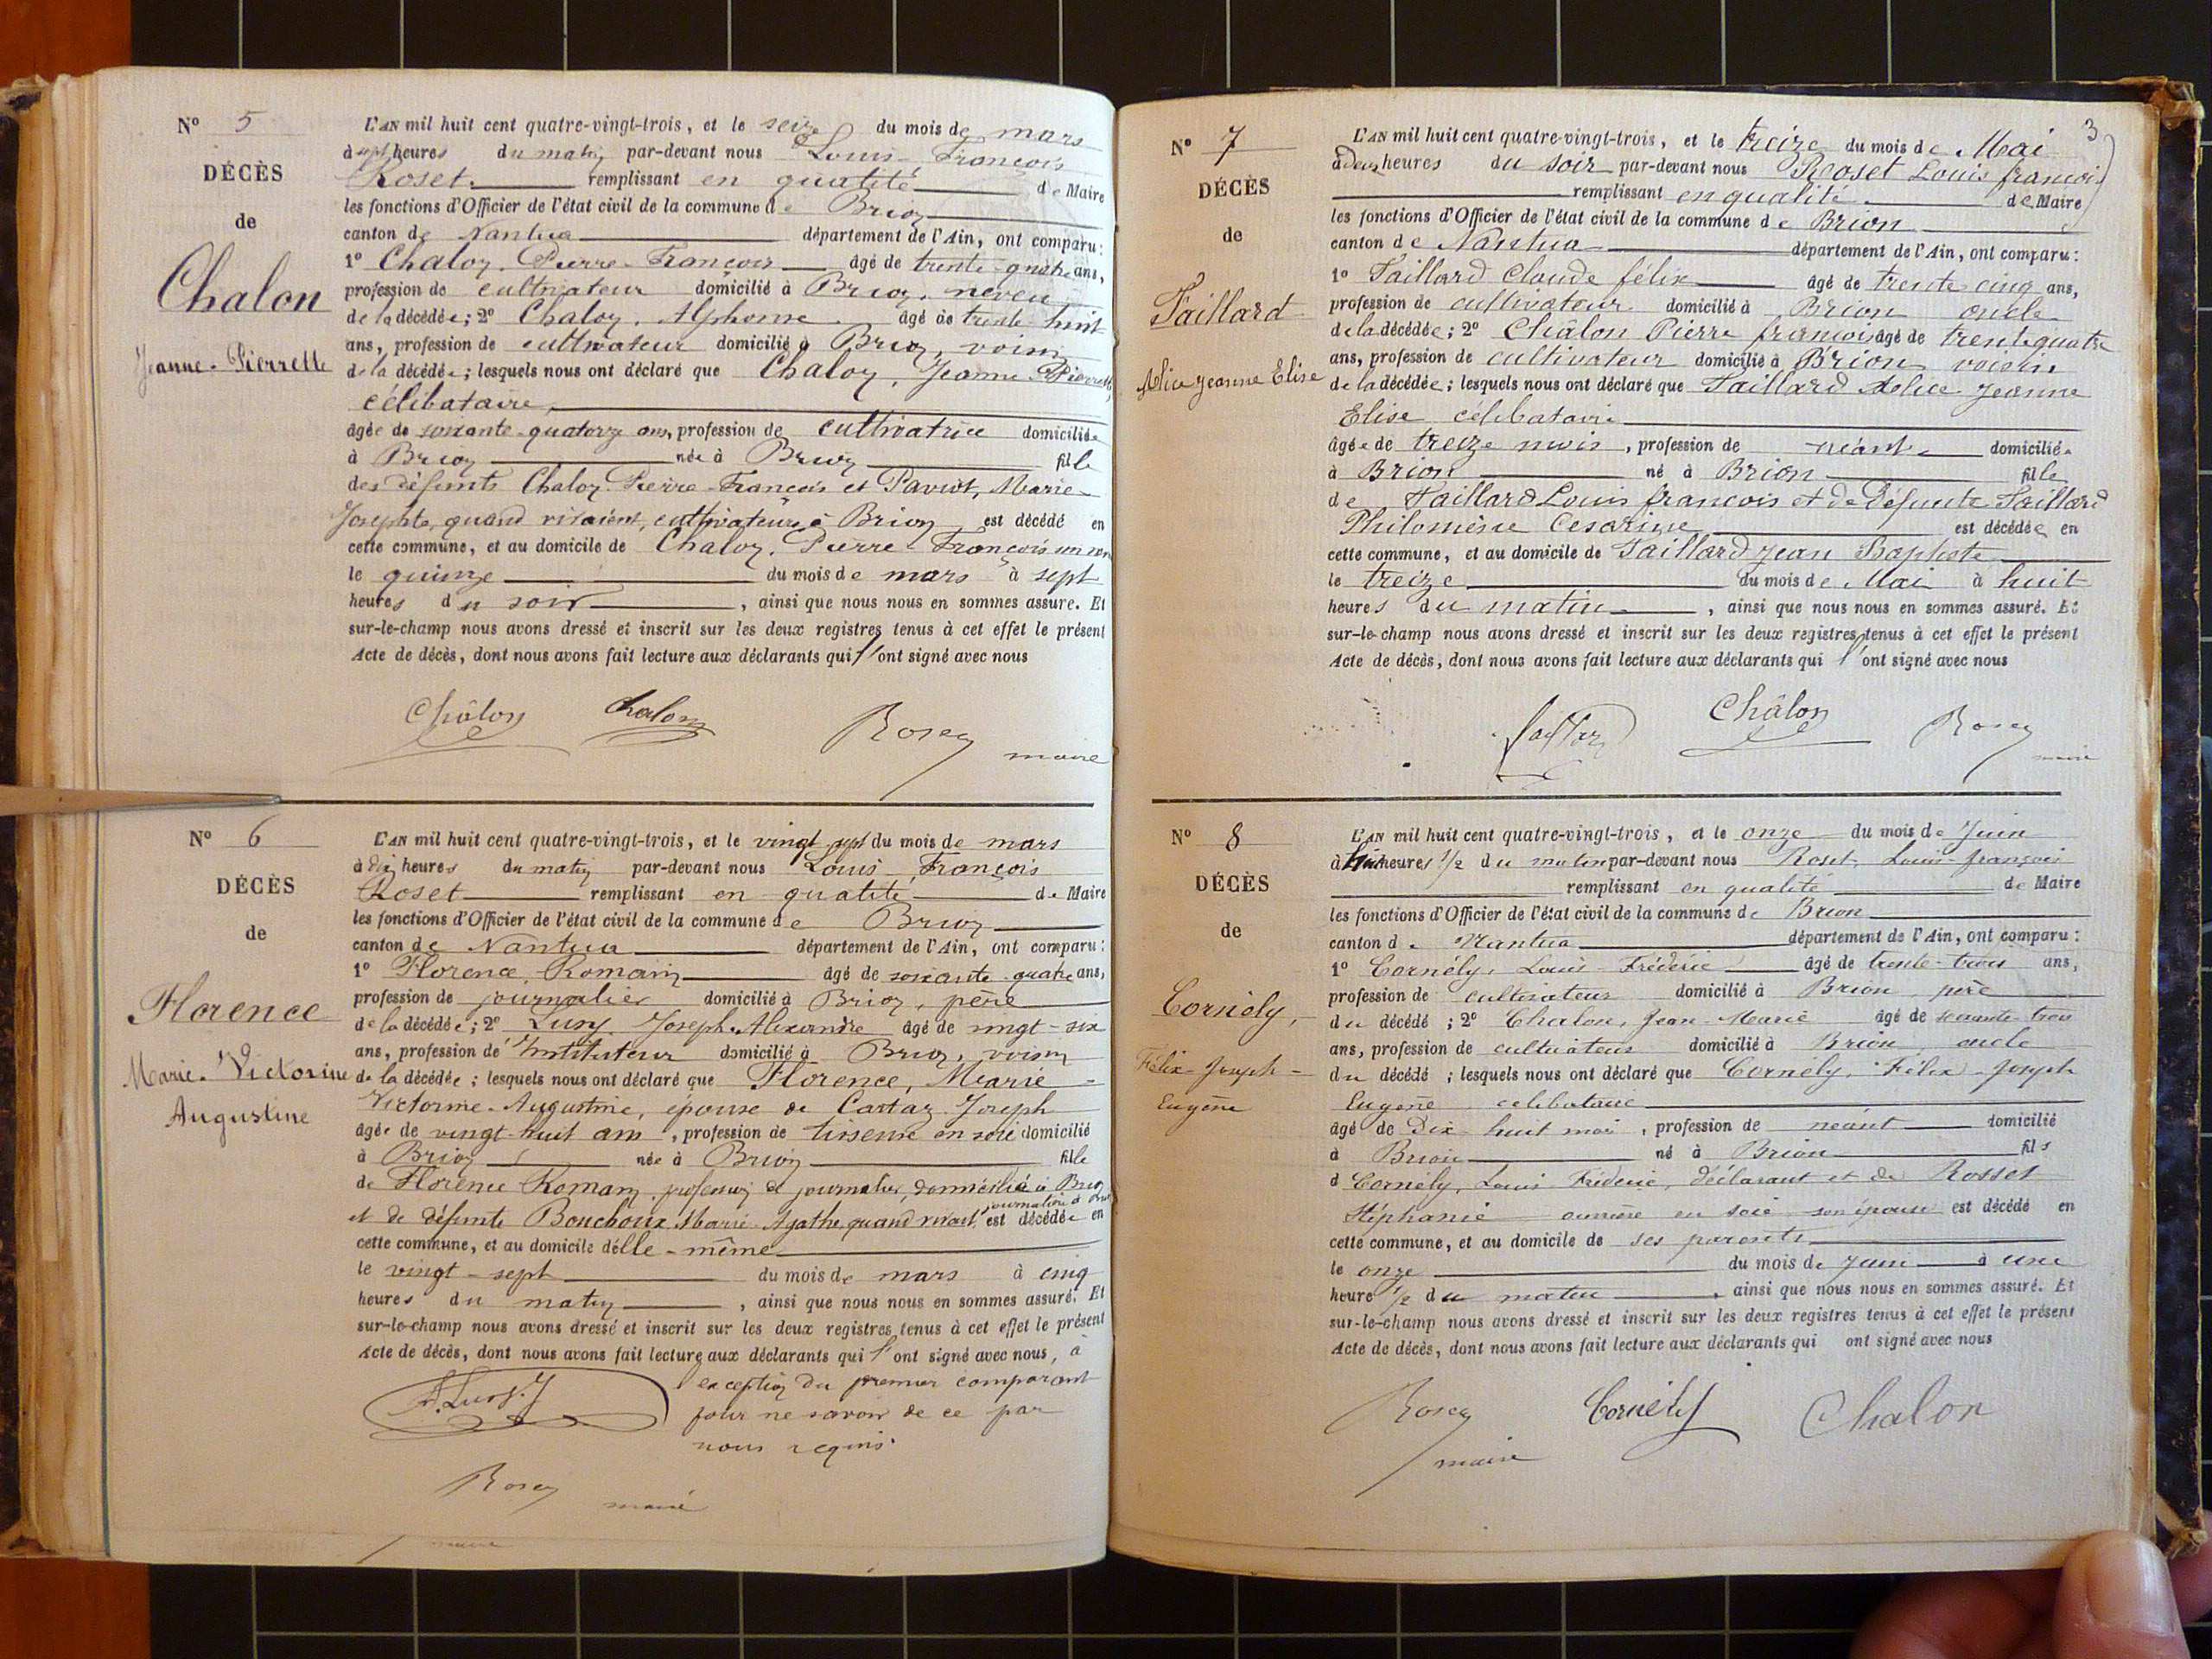 N° 5
DÉCÈS
de
Chalon
Jeanne-Pierrette
L'AN mil huit cent quatre-vingt-trois, et le seize du mois de mars
à sept heures du matin par-devant nous Louis-François
Roset remplissant en qualité de Maire
les fonctions d'Officier de l'état civil de la commune de Brion
canton de Nantua département de l'Ain, ont comparu:
1° Chalon, Pierre-François âgé de trente-quatre ans,
profession de cultivateur domicilié à Brion, neveu
de la décédée; 2° Chalon, Alphonse âgé de trente-huit
ans, profession de cultivateur domicilié à Brion, voisin
de la décédée; lesquels nous ont déclaré que Chalon, Jeanne Pierrette,
célibataire,
âgée de soixante-quatorze ans, profession de cultivatrice domiciliée
à Brion née à Brion fille
des défunts Chalon Pierre-François et Paviot, Marie-
Josephte, quand vivaient, cultivateurs à Brion, est décédé en
cette commune, et au domicile de Chalon, Pierre-François son neveu
le quinze du mois de mars à sept
heures du soir, ainsi que nous nous en sommes assuré. Et
sur-le-champ nous avons dressé et inscrit sur les deux registres tenus à cet effet le présent
Acte de décès, dont nous avons fait lecture aux déclarants qui l'ont signé avec nous
Châlon Chalon Roset
maire
N° 6
DÉCÈS
de
Florence
Marie-Victorine
Augustine
L'AN mil huit cent quatre-vingt-trois, et le vingt sept du mois de mars
à dix heures du matin par-devant nous Louis-François
Roset remplissant en qualité de Maire
les fonctions d'Officier de l'état civil de la commune de Brion
canton de Nantua département de l'Ain, ont comparu:
1° Florence, Romain âgé de soixante-quatre ans,
profession de journalier domicilié à Brion, père
de la décédée; 2° Lusy, Joseph-Alexandre âgé de vingt-six
ans, profession de Instituteur domicilié à Brion, voisin
de la décédée; lesquels nous ont déclaré que Florence, Marie-
Victorine-Augustine, épouse de Cartaz Joseph
âgée de vingt-huit ans, profession de tisseuse en soie domicilié
à Brion née à Brion fille
de Florence Romain, profession de journalier, domicilié à Brion
et de défunte Bouchoux, Marie-Agathe, quand vivait, journalière à Brion est décédée en
cette commune, et au domicile d'elle-même
le vingt-sept du mois de mars à cinq
heures du matin, ainsi que nous nous en sommes assuré. Et
sur-le-champ nous avons dressé et inscrit sur les deux registres tenus à cet effet le présent
Acte de décès, dont nous avons fait lecture aux déclarants qui l'ont signé avec nous, à
exception du premier comparant
pour ne savoir de ce par
nous requis.
A. Lusy. J
Roset
maire
maire
3
N° 7
DÉCÈS
de
Taillard
Alice Jeanne Elise
L'AN mil huit cent quatre-vingt-trois, et le treize du mois de Mai
à deux heures du soir par-devant nous Roset Louis françois
remplissant en qualité de Maire
les fonctions d'Officier de l'état civil de la commune de Brion
canton de Nantua département de l'Ain, ont comparu:
1° Taillard Claude félix âgé de trente cinq ans,
profession de cultivateur domicilié à Brion oncle
de la décédée; 2° Chalon Pierre françois âgé de trente quatre
ans, profession de cultivateur domicilié à Brion voisin
de la décédée; lesquels nous ont déclaré que Taillard Alice Jeanne
Elise célibataire
âgée de treize mois, profession de néant domiciliée
à Brion né à Brion fille
de Taillard Louis françois et de défunte Taillard
Philomène Cesarine est décédée en
cette commune, et au domicile de Taillard Jean Baptiste
le treize du mois de Mai à huit
heures du matin, ainsi que nous nous en sommes assuré. Et
sur-le-champ nous avons dressé et inscrit sur les deux registres tenus à cet effet le présent
Acte de décès, dont nous avons fait lecture aux déclarants qui l'ont signé avec nous
Taillard Châlon Roset
maire
N° 8
DÉCÈS
de
Cornély,
Félix-Joseph-
Eugène
L'AN mil huit cent quatre-vingt-trois, et le onze du mois de Juin
à huit heures 1/2 du matin par-devant nous Roset, Louis-françois
remplissant en qualité de Maire
les fonctions d'Officier de l'état civil de la commune de Brion
canton de Nantua département de l'Ain, ont comparu:
1° Cornély, Louis-Fréderic âgé de trente-trois ans,
profession de cultivateur domicilié à Brion, père
du décédé; 2° Chalon, Jean-Marie âgé de soixante-trois
ans, profession de cultivateur domicilié à Brion, oncle
du décédé; lesquels nous ont déclaré que Cornély, Félix-Joseph
Eugène célibataire
âgé de Dix-huit mois, profession de néant domicilié
à Brion né à Brion fils
d Cornély, Louis Fréderic, déclarant et de Rosset
Stéphanie ouvrière en soie son épouse est décédé en
cette commune, et au domicile de ses parents
le onze du mois de Juin à une
heure 1/2 du matin, ainsi que nous nous en sommes assuré. Et
sur-le-champ nous avons dressé et inscrit sur les deux registres tenus à cet effet le présent
Acte de décès, dont nous avons fait lecture aux déclarants qui ont signé avec nous
Roset Cornély Chalon
maire